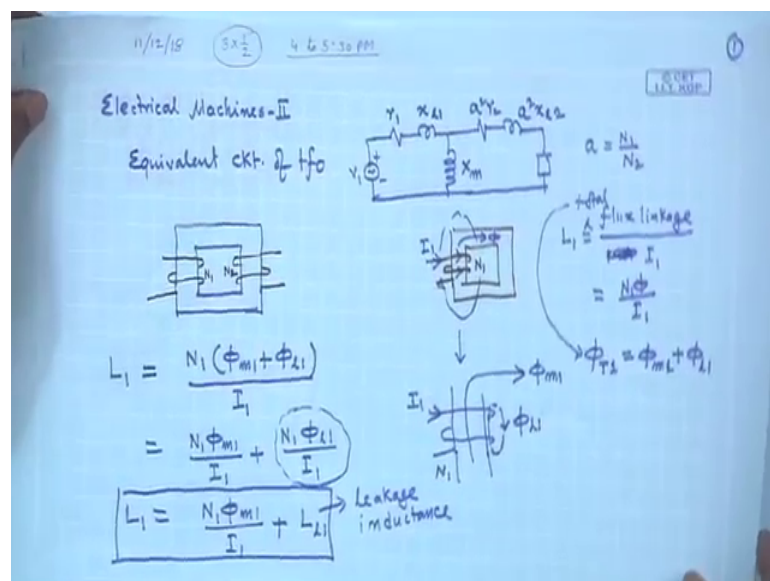 11/12/18 3×½ 4 to 5:30 PM ①
© CET
I.I.T. KGP
Electrical Machines-II
Equivalent ckt. of tfo
r₁ x_l1 a²r₂ a²x_l2
V₁ + - X_m
a = N₁/N₂
N₁ N₂
I₁ φ N₁
L₁ ≜ total flux linkage / I₁
= N₁φ / I₁
φ_T1 = φ_m1 + φ_l1
L₁ = N₁(φ_m1 + φ_l1) / I₁
= N₁φ_m1 / I₁ + N₁φ_l1 / I₁
L₁ = N₁φ_m1 / I₁ + L_l1
Leakage
inductance
φ_m1
I₁ φ_l1
N₁